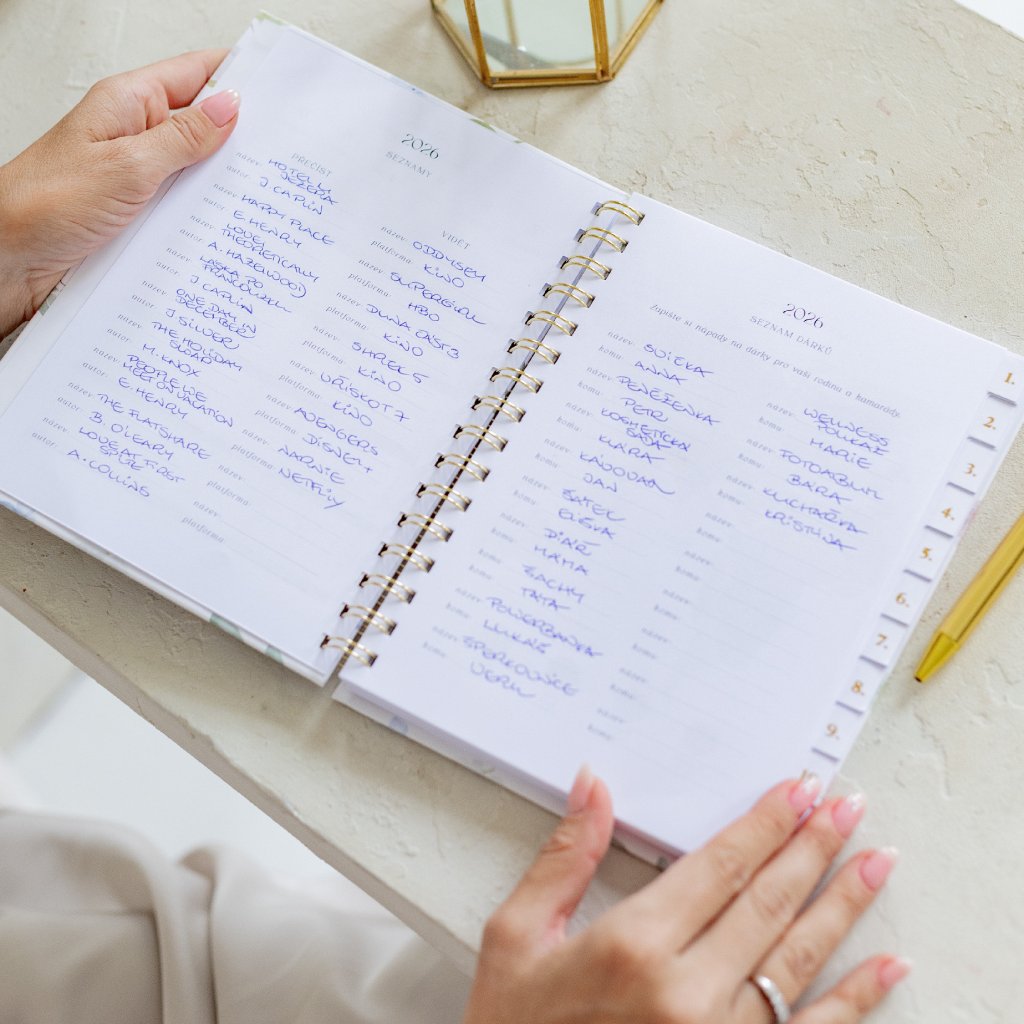 2026
SEZNAMY
PŘEČÍST
název: HOTEL U
JEZERA
autor: J. CAPLIN
název: HAPPY PLACE
autor: E. HENRY
název: LOVE,
THEORETICALLY
autor: A. HAZELWOOD
název: LÁSKA PO
FRANCOUZSKU
autor: J CAPLIN
název: ONE DAY IN
DECEMBER
autor: J SILVER
název: THE HOLIDAY
SWAP
autor: M. KNOX
název: PEOPLE WE
MEET ON VACATION
autor: E. HENRY
název: THE FLATSHARE
autor: B. O'LEARY
název: LOVE AT FIRST
autor: A. COLLINS
VIDĚT
název: ODDYSEY
platforma: KINO
název: SUPERGIRL
platforma: HBO
název: DUNA ČÁST 3
platforma: KINO
název: SHREK 5
platforma: KINO
název: VŘISKOT 7
platforma: KINO
název: AVENGERS
platforma: DISNEY+
název: NARNIE
platforma: NETFLIX
název:
platforma:
název:
platforma:
2026
SEZNAM DÁRKŮ
Zapište si nápady na dárky pro vaši rodinu a kamarády.
název: SVÍČKA
komu: ANNA
název: PENĚŽENKA
komu: PETR
název: KOSMETICKÁ
SADA
komu: KLÁRA
název: KÁVOVAR
komu: JAN
název: ŠÁTEK
komu: ELIŠKA
název: DIÁŘ
komu: MÁMA
název: ŠACHY
komu: TÁTA
název: POWERBANKA
komu: LUKÁŠ
název: ŠPERKOVNICE
komu: VERU
název: WELLNESS
POUKAZ
komu: MARIE
název: FOTOALBUM
komu: BÁRA
název: KUCHAŘKA
komu: KRISTÝNA
název:
komu:
název:
komu:
název:
komu:
název:
komu:
název:
komu:
1.
2.
3.
4.
5.
6.
7.
8.
9.